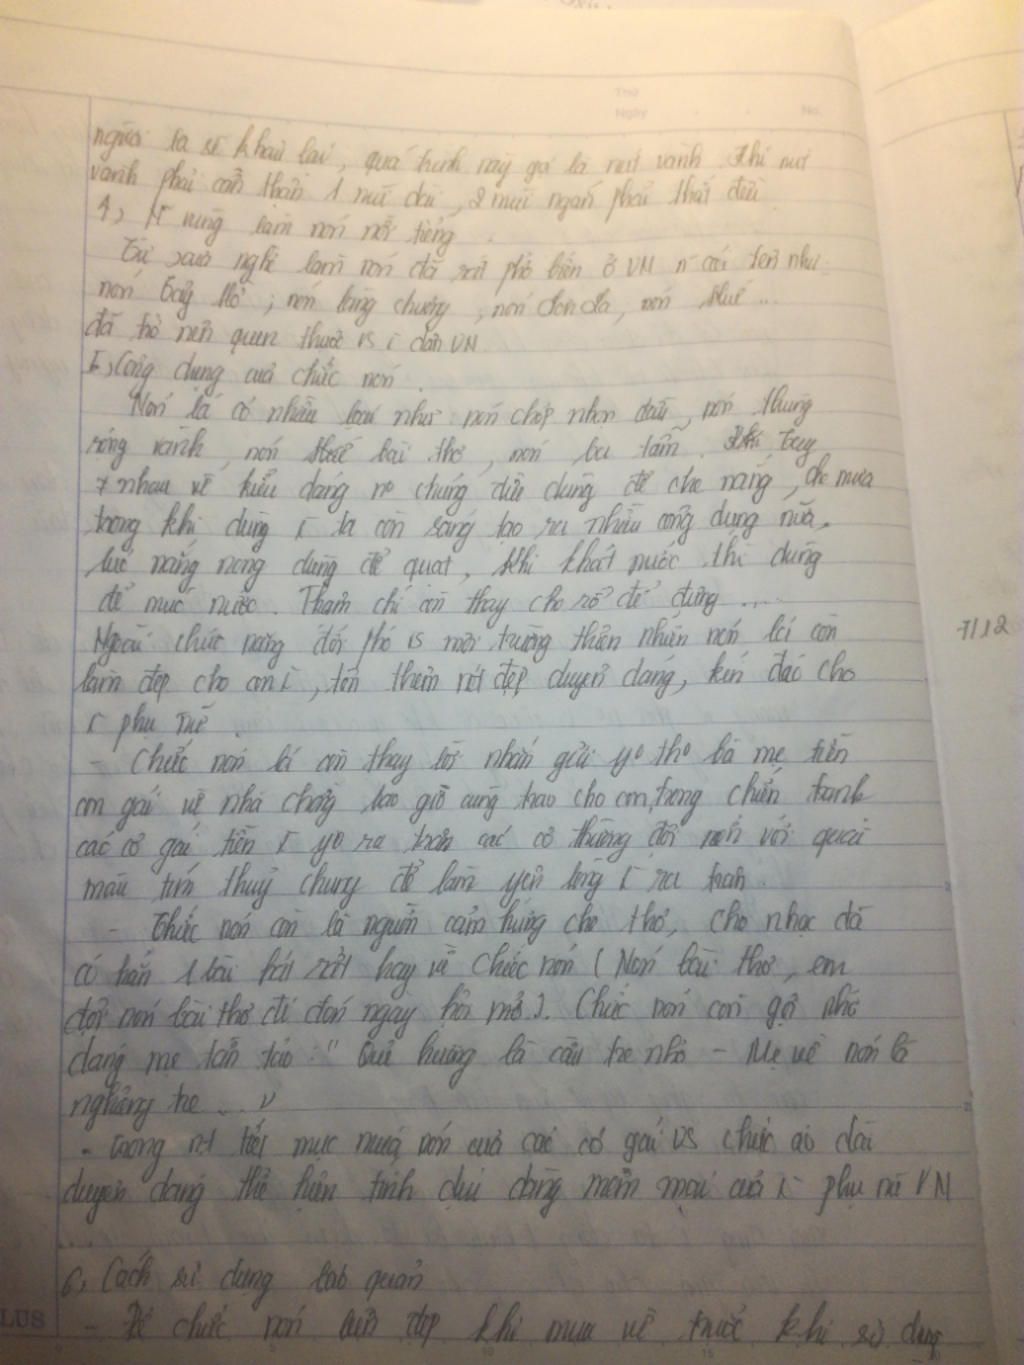 Thứ
Ngày No.
người ta sẽ khâu lại, quá trình này gọi là nứt vành. Khi nứt
vành phải cẩn thận 1 mũi dài, 2 mũi ngắn phải thật đều
4, N vùng làm nón nổi tiếng
Từ xưa nghề làm nón đã rất phổ biến ở VN n cái tên như
nón Gò; nón làng chuông, nón, nón Huế ...
đã trở nên quen thuộc vs dân VN
5, Công dụng của chiếc nón
Nón lá có nhiều loại như nón chóp nhọn đầu, nón thúng
rộng vành, nón bài thơ, nón ba tầm. Tuy
≠ nhau về kiểu dáng chúng đều dùng để che nắng, che mưa
trong khi dùng ta còn sáng tạo ra nhiều công dụng nữa.
lúc nắng nóng dùng để quạt, khi khát nước thì dùng
để múc nước. Thậm chí còn thay cho rổ để đựng ....
Ngoài chức năng đối phó vs môi trường thiên nhiên nón lá còn
làm đẹp cho con, tôn thêm nét đẹp duyên dáng, kín đáo cho
phụ nữ.
- Chiếc nón lá còn thay lời nhắn gửi bà mẹ tiễn
con gái về nhà chồng bao giờ cũng trao cho con, trong chiến tranh
các cô gái tiễn ra trận các cô thường đội nón với quai
màu tím thuỷ chung để làm yên lòng ra trận.
- Chiếc nón còn là nguồn cảm hứng cho thơ, cho nhạc đã
có hẳn 1 bài hát rất hay về chiếc nón (Nón bài thơ, em
đội nón bài thơ đi đón ngày hội mở). Chiếc nón còn gợi nhớ
dáng mẹ tần tảo: " Quê hương là cầu tre nhỏ - Mẹ về nón lá
nghiêng che ... "
- Trong tiết mục múa nón của các cô gái vs chiếc áo dài
duyên dáng thể hiện tính dịu dàng mềm mại của phụ nữ VN
6, Cách sử dụng bảo quản
- Để chiếc nón đẹp khi mua về trước khi sử dụng
LUS